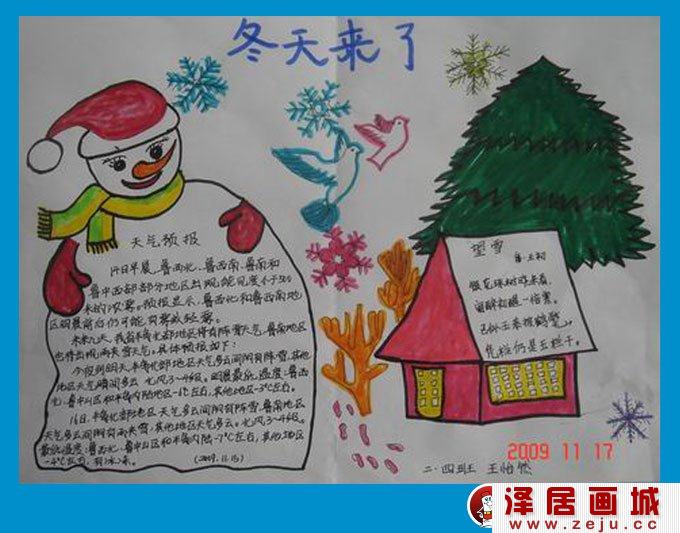 冬天来了
天气预报
14日早晨,鲁西北、鲁西南、鲁南和
鲁中西部部分地区出现能见度小于500
米的浓雾。预报显示,鲁西北和鲁西南地
区明晨前后仍可能有雾或轻雾。
未来九天,我省半岛北部地区将有阵雪天气,鲁南地区
也将出现雨夹雪天气。具体预报如下:
今夜到明天半岛北部地区天气多云间阴有阵雪,其他
地区天气晴间多云。北风3~4级。明晨最低温度:鲁西
北、鲁中山区和半岛内陆地区-6℃左右,其他地区-3℃左右。
16日,半岛北部地区天气多云间阴有阵雪,鲁南地区
天气多云间阴有雨夹雪,其他地区天气多云。北风3~4级。
最低温度:鲁西北、鲁中山区和半岛内陆-7℃左右,其他地区
-4℃左右,有冰冻。
(2009.11.15)
望雪
银花珠树晓来看,
宿醉初醒一倍寒。
已似王恭披鹤氅,
凭栏仍是玉栏干。
2009 11 17
二.四班 王怡然
泽居画城
www.zeju.cc